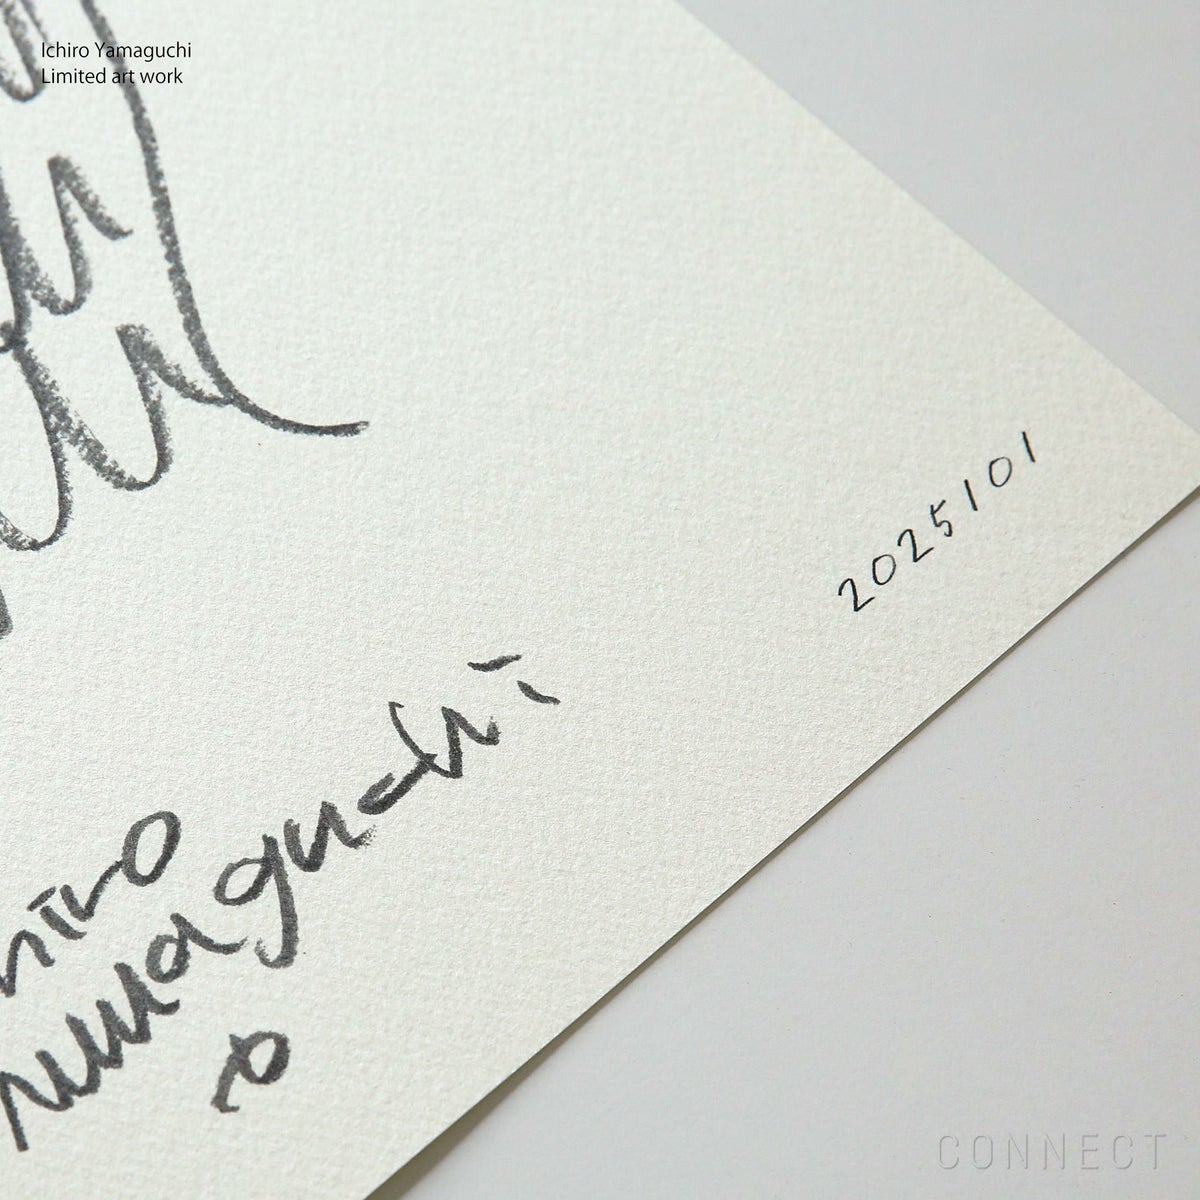 Ichiro Yamaguchi
Limited art work
2025101
hiro
amaguchi
CONNECT